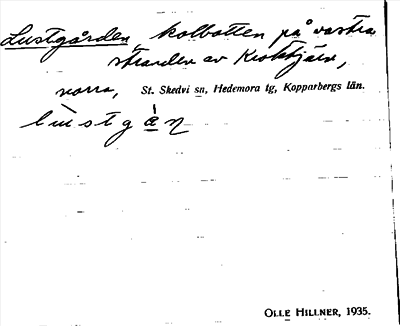 Lustgården, kolbotten på västra
stranden av Krokttjärn,
norra, St. Skedvi sn, Hedemora tg, Kopparbergs län.
lustgàn
OLLE HILLNER, 1935.